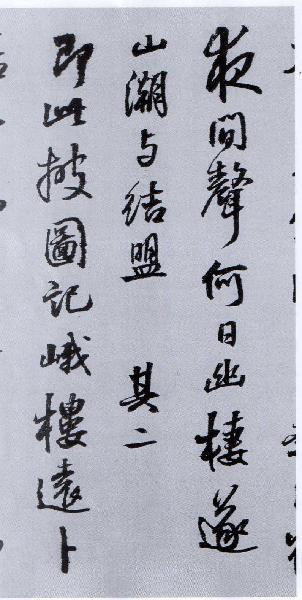 夜間聲何日幽棲遂
山湖与結盟 其二
即此披圖記峨樓遠卜